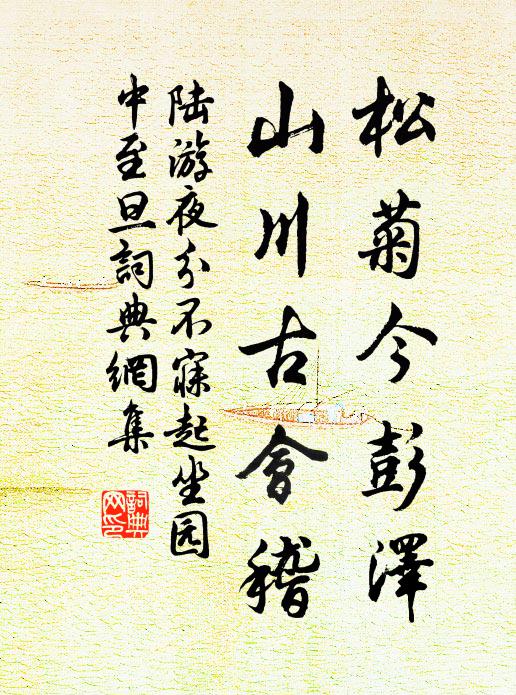 松菊今彭澤
山川古會稽
陆游夜分不寐起坐园
中至旦詞典網集
詞典
网印